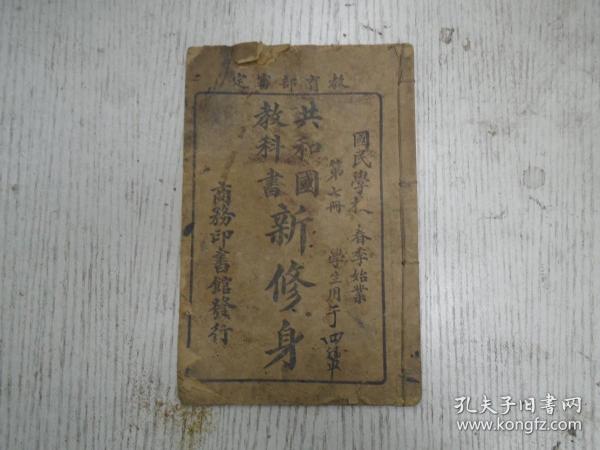 教育部審定
國民學校 春季始業
第七冊 學生用
共和國
教科書
新修身
商務印書館發行
孔夫子旧书网
www.kongfz.com